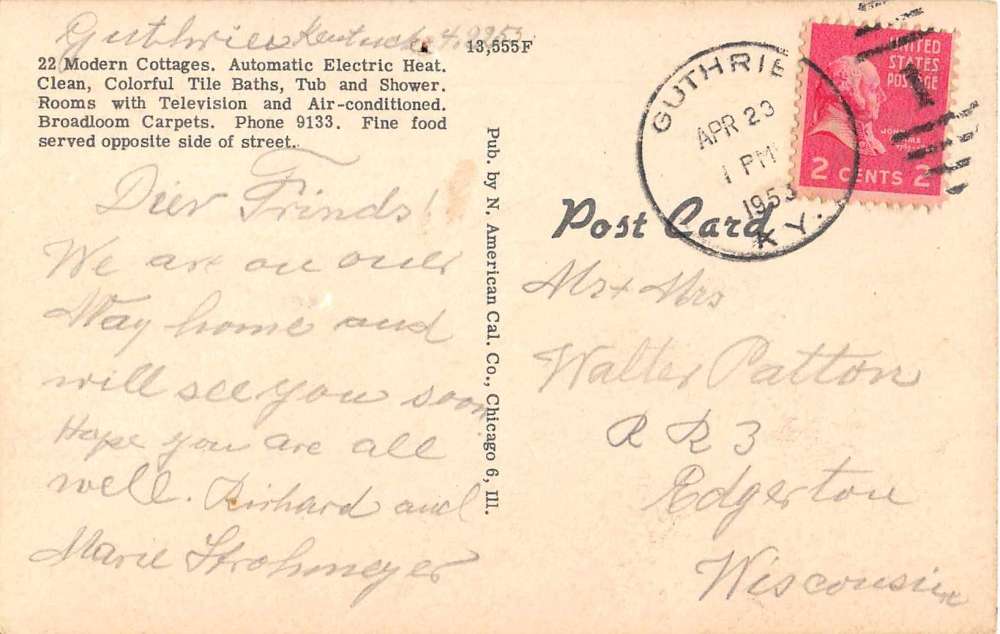 Guthrie Kentucky 4, 1953
13,555F
22 Modern Cottages. Automatic Electric Heat.
Clean, Colorful Tile Baths, Tub and Shower.
Rooms with Television and Air-conditioned.
Broadloom Carpets. Phone 9133. Fine food
served opposite side of street.
Dier Frinds!
We are on ouer
Way home and
will see you soon
Hope you are all
well. Richard and
Marie Strohmeyer
Pub. by N. American Cal. Co., Chicago 6, Ill.
GUTHRIE
APR 23
1 PM
1953
KY.
UNITED
STATES
POSTAGE
2 CENTS 2
1
Post Card
Mr + Mrs
Walter Patton
R R 3
Edgerton
Wisconsin